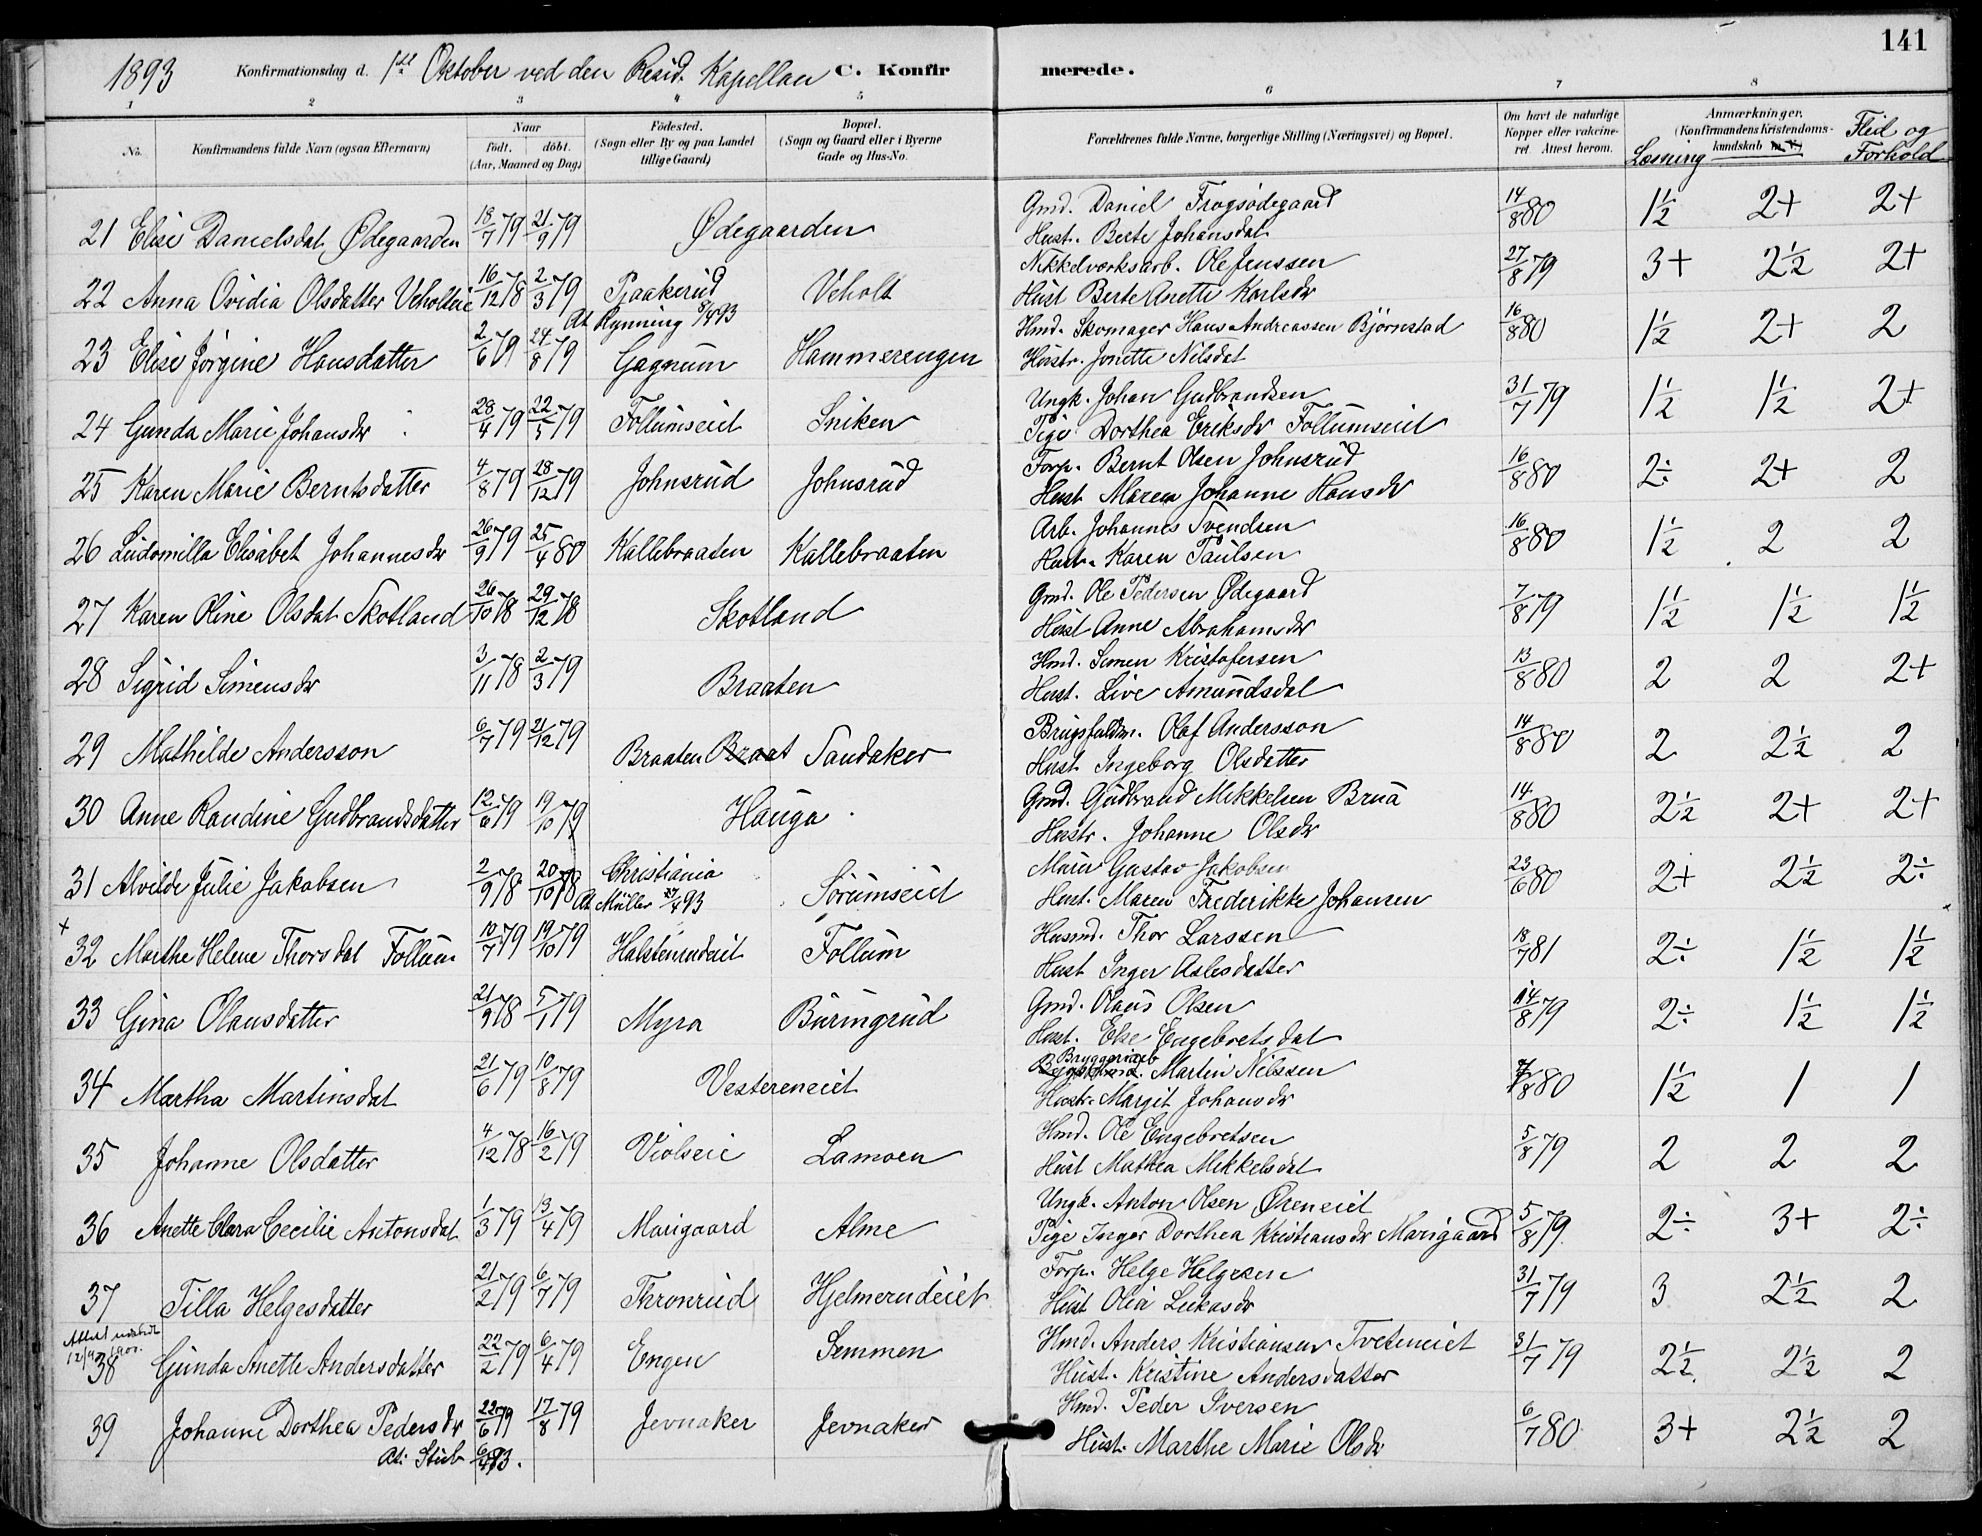 141
1893 Konfirmationsdag d. 1ste Oktober ved den Resid. Kapellan C. Konfirmerede.
1 2 3 4 5 6 7 8
No. Konfirmandens fulde Navn (ogsaa Efternavn) Naar født. døbt. (Aar, Maaned og Dag) Fødested. (Sogn eller By og paa Landet tillige Gaard) Bopæl. (Sogn og Gaard eller i Byerne Gade og Hus-No. Forældrenes fulde Navne, borgerlige Stilling (Næringsvei) og Bopæl. Om havt de naturlige Kopper eller vakcineret. Attest herom. Anmærkninger. (Konfirmandens Kristendomskundskab m. V.) Læsning Flid og Forhold
21 Elise Danielsdat Ødegaarden 18/7 79 21/9 79 Ødegaarden Gmd. Daniel Frogsødegaard 14/8 80 1½ 2+ 2+
Hust. Berte Johansdat
22 Anna Ovidia Olsdatter Veholteie 16/12 78 2/3 79 Paakerud Veholt Nikkelverksarb. Ole Jenssen 27/8 79 3+ 2½ 2+
At Rynning 8/4 93 Hust Berte Anette Karlsdr
23 Elise Jørgine Hansdatter 2/6 79 24/8 79 Gagnum Hammerengen Hmd. Skomager Hans Andreassen Bjørnstad 16/8 80 1½ 2+ 2
Hustr. Jonette Nilsdat
24 Gunda Marie Johansdr 28/4 79 22/5 79 Follumseiet Sniken Ungk. Johan Gudbrandsen 31/7 79 1½ 1½ 2+
Pige Dorthea Eriksdr Follumseiet
25 Karen Marie Berntsdatter 4/8 79 28/12 79 Johnsrud Johnsrud Forp. Bernt Olsen Johnsrud 16/8 80 2÷ 2+ 2
Hust Maren Johanne Hansdr
26 Ludomilla Elisabet Johannesdr 26/9 79 25/4 80 Kallebraaten Kallebraaten Arb. Johannes Svendsen 16/8 80 1½ 2 2
Hust. Karen Paulsen
27 Karen Oline Olsdat Skotland 26/10 78 29/12 78 Skotland Gmd. Ole Pedersen Ødegaard 7/8 79 1½ 1½ 1½
Hust Anne Abrahamsdr
28 Sigrid Simensdr 3/11 78 2/3 79 Braaten Hmd. Simen Kristofersen 13/8 80 2 2 2+
Hust. Live Amundsdat
29 Mathilde Andersson 6/7 79 21/12 79 Braaten Braat Sandaker Brugsfuldm. Olaf Andersson 14/8 80 2 2½ 2
Hust. Ingeborg Olsdatter
30 Anne Randine Gudbrandsdatter 12/6 79 19/10 79 Hauga Gmd. Gudbrand Mikkelsen Brua 14/8 80 2½ 2+ 2+
Hustr. Johanne Olsdr
31 Alvilde Julie Jakobsen 2/9 78 20/10 78 Christiania Sørumseiet Maler Gustav Jakobsen 23/6 80 2+ 2½ 2÷
At Müller 27/4 93 Hust. Maren Frederikke Johansen
+ 32 Marthe Helene Thorsdat Follum 10/7 79 19/10 79 Halstenrudeiet Follum Husmd. Thor Larssen 18/7 81 2÷ 1½ 1½
Hust Inger Aslesdatter
33 Gina Olausdatter 21/9 78 5/1 79 Myra Büringrud Gmd. Olaus Olsen 14/8 79 2÷ 1½ 1½
Hust. Else Engebretsdat
34 Martha Martinsdat 21/6 79 10/8 79 Vestereneiet Bryggeriarb. Martin Nilssen 7/8 80 1½ 1 1
Hustr. Margit Johansdr
35 Johanne Olsdatter 4/12 78 16/2 79 Violseie Lamoen Hmd. Ole Engebretsen 5/8 79 2 2 2
Hust Mathea Mikkelsdat
36 Anette Clara Cecilie Antonsdat 1/3 79 13/4 79 Marigaard Alme Ungk. Anton Olsen Øreneiet 5/8 79 2÷ 3+ 2÷
Pige Inger Dorthea Kristiansdr Marigaard
37 Tilla Helgesdatter 21/2 79 6/7 79 Thronrud Hjelmerudeiet Forp. Helge Helgesen 31/7 79 3 2½ 2
Hust Olia Lukasdr
Attest udstedt 12/4 1900.
38 Gunda Anette Andersdatter 22/2 79 6/4 79 Engen Semmen Hmd. Anders Kristiansen Tveteneiet 31/7 79 2½ 2½ 2
Hust. Kristine Andersdatter
39 Johanne Dorthea Pedersdr 22/6 79 17/8 79 Jevnaker Jevnaker Hmd. Peder Iversen 6/7 80 3+ 2½ 2
At: Stub 6/4 93. Hust. Marthe Marie Olsdr